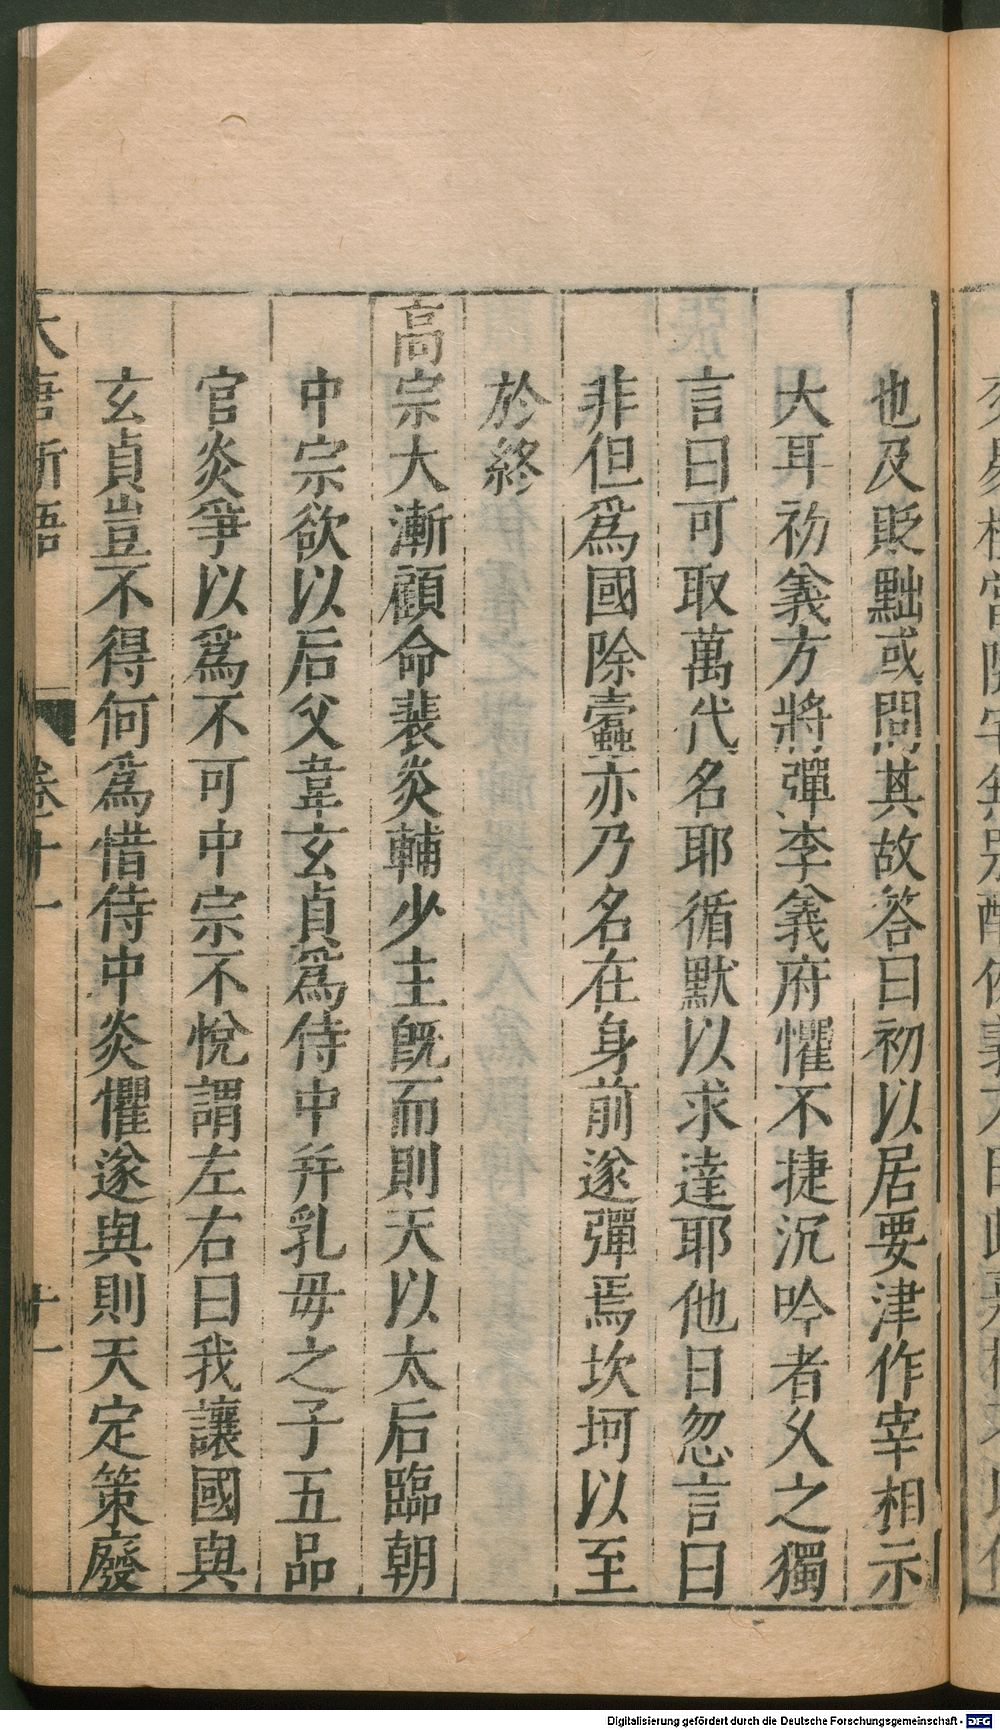 也及貶黜或問其故答曰初以居要津作宰相示
大耳初義方將彈李義府懼不捷沉吟者乆之獨
言曰可取萬代名耶循默以求達耶他日忽言曰
非但爲國除蠹亦乃名在身前遂彈焉坎坷以至
於終
高宗大漸顧命裴炎輔少主旣而則天以太后臨朝
中宗欲以后父韋玄貞爲侍中幷乳母之子五品
官炎爭以爲不可中宗不悅謂左右曰我讓國與
玄貞豈不得何爲惜侍中炎懼遂與則天定策廢
大唐新語
卷十一
十一
Digitalisierung gefördert durch die Deutsche Forschungsgemeinschaft - DFG